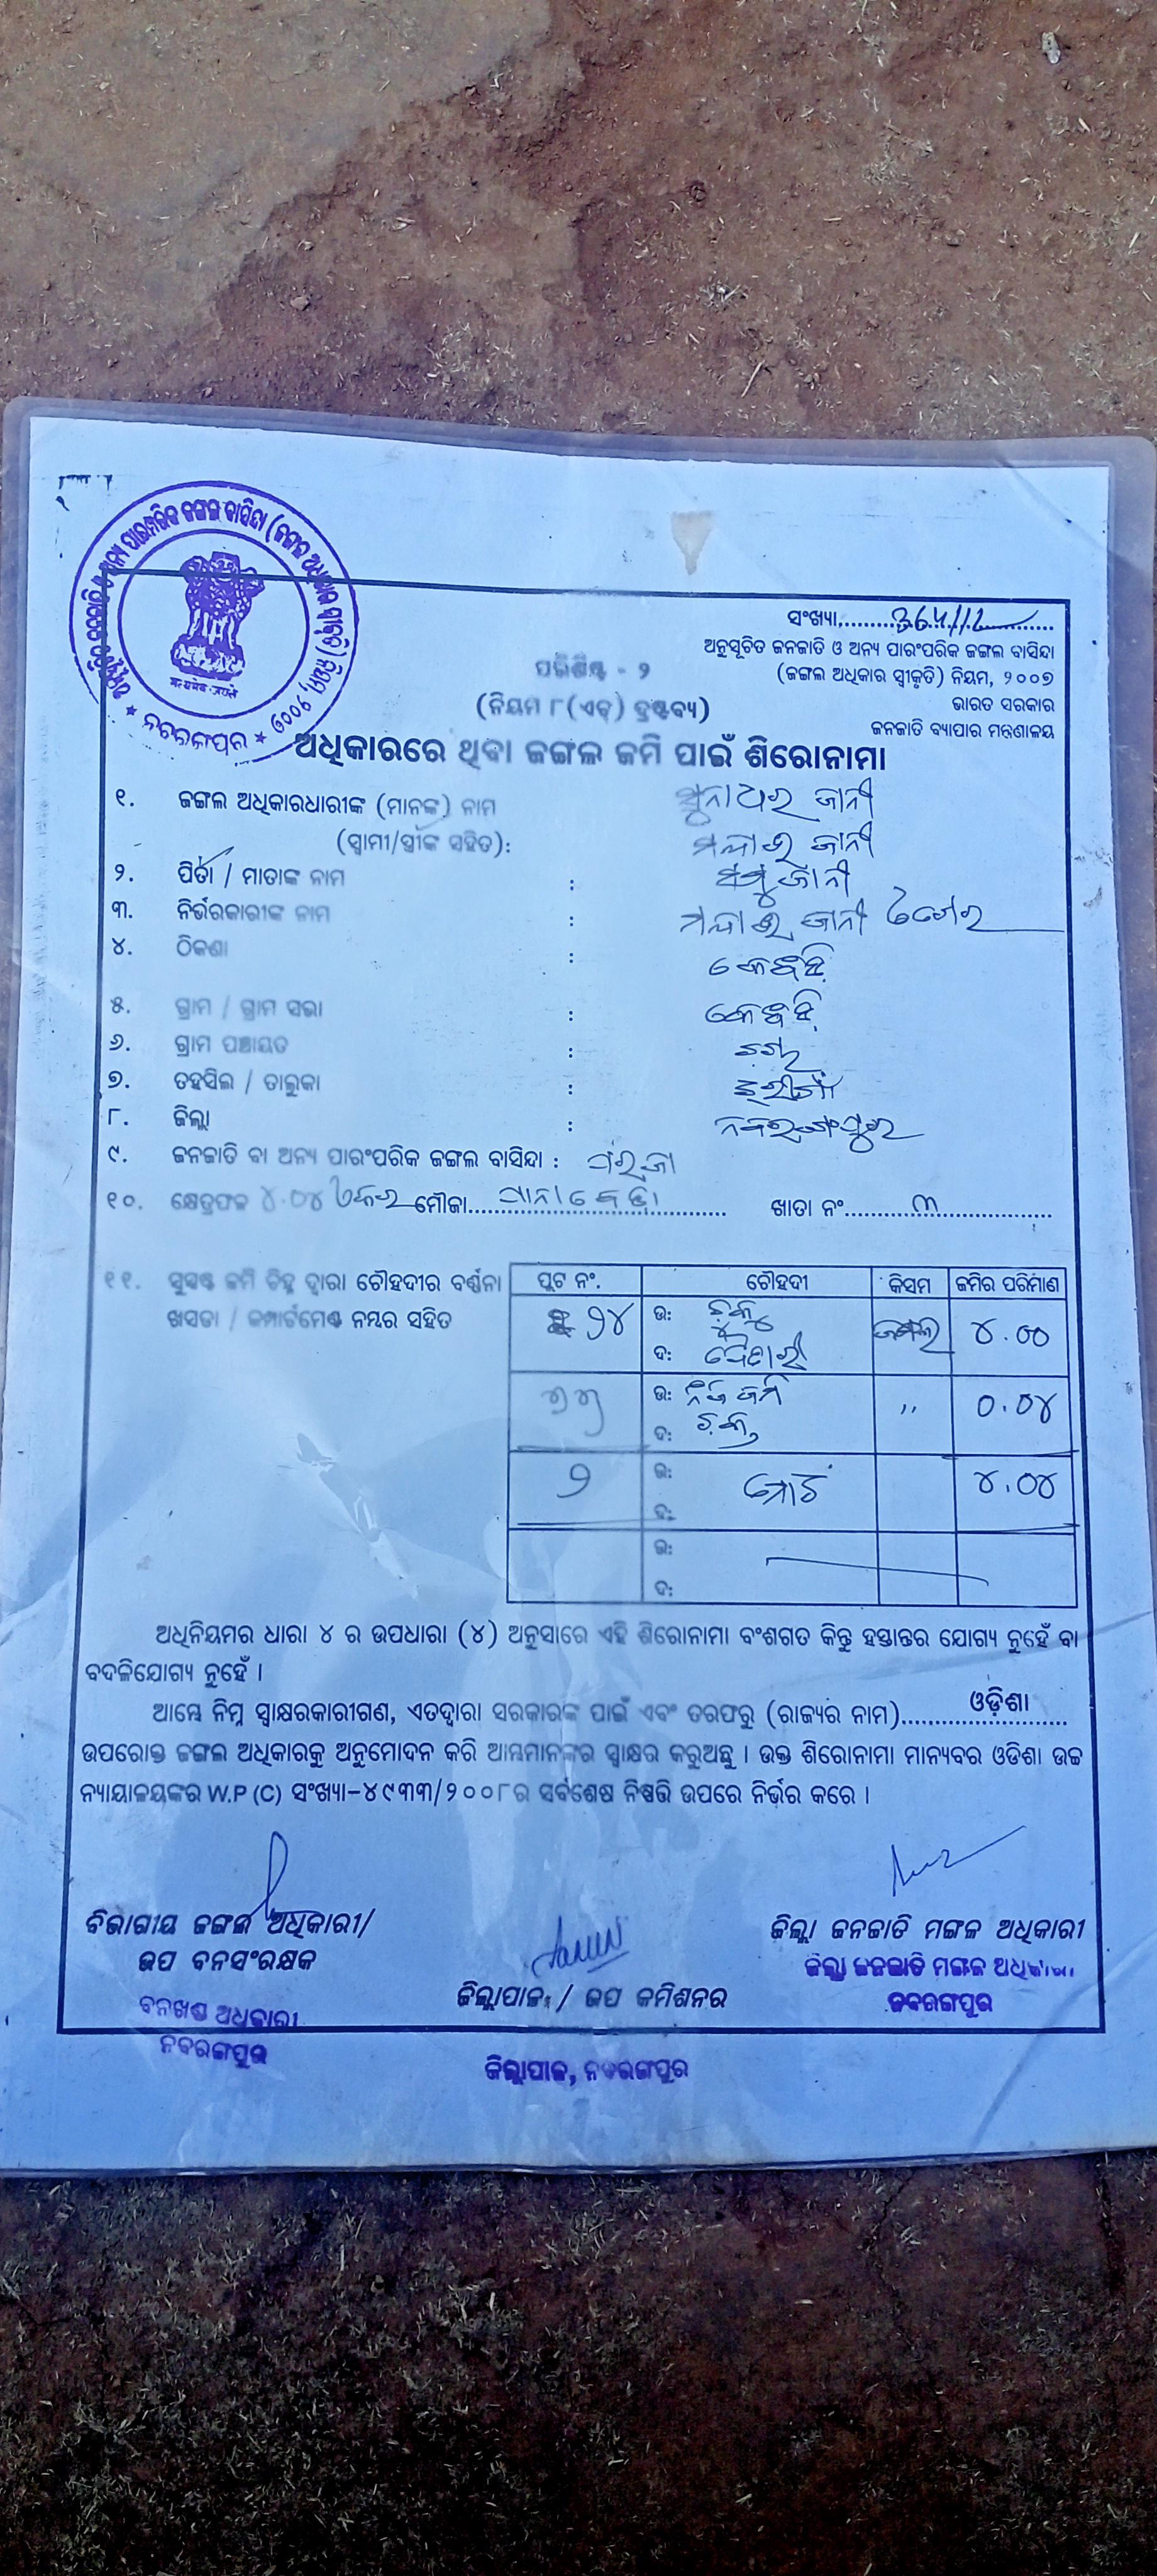 ସଂଖ୍ୟା
ଅନୁସୂଚିତ ଜନଜାତି ଓ ଅନ୍ୟ ପାରଂପରିକ ଜଙ୍ଗଲ ବାସିନ୍ଦା
(ଜଙ୍ଗଲ ଅଧିକାର ସ୍ୱୀକୃତି) ନିୟମ, ୨୦୦୭
ଭାରତ ସରକାର
ଜନଜାତି ବ୍ୟାପାର ମନ୍ତ୍ରଣାଳୟ
ପରିଶିଷ୍ଟ - ୨
(ନିୟମ ୮(ଏଚ୍) ଦ୍ରଷ୍ଟବ୍ୟ)
ଅଧିକାରରେ ଥିବା ଜଙ୍ଗଲ ଜମି ପାଇଁ ଶିରୋନାମା
୧. ଜଙ୍ଗଲ ଅଧିକାରଧାରୀଙ୍କ (ମାନଙ୍କ) ନାମ ସୁନାଧର ଜାନୀ
(ସ୍ୱାମୀ/ସ୍ତ୍ରୀଙ୍କ ସହିତ): ଜାନୀ
୨. ପିତା / ମାତାଙ୍କ ନାମ : ଜାନୀ
୩. ନିର୍ଭରକାରୀଙ୍କ ନାମ : ଜାନୀ
୪. ଠିକଣା :
୫. ଗ୍ରାମ / ଗ୍ରାମ ସଭା :
୬. ଗ୍ରାମ ପଞ୍ଚାୟତ :
୭. ତହସିଲ / ତାଲୁକା :
୮. ଜିଲ୍ଲା : ନବରଙ୍ଗପୁର
୯. ଜନଜାତି ବା ଅନ୍ୟ ପାରଂପରିକ ଜଙ୍ଗଲ ବାସିନ୍ଦା : ପରଜା
୧୦. କ୍ଷେତ୍ରଫଳ ୪.୦୪ ଏକର ମୌଜା ଖାତା ନଂ ୩
୧୧. ସୁସ୍ପଷ୍ଟ ଜମି ଚିହ୍ନ ଦ୍ୱାରା ଚୌହଦୀର ବର୍ଣ୍ଣନା
ଖସଡା / କମ୍ପାର୍ଟମେଣ୍ଟ ନମ୍ବର ସହିତ
ପ୍ଲଟ ନଂ. ଚୌହଦୀ କିସମ ଜମିର ପରିମାଣ
ଉ: ଜଙ୍ଗଲ ୪.୦୦
ଦ:
ଉ: ନିଜ ଜମି ,, ୦.୦୪
ଦ:
୨ ଉ: ମୋଟ ୪.୦୪
ଦ:
ଉ:
ଦ:
ଅଧିନିୟମର ଧାରା ୪ ର ଉପଧାରା (୪) ଅନୁସାରେ ଏହି ଶିରୋନାମା ବଂଶଗତ କିନ୍ତୁ ହସ୍ତାନ୍ତର ଯୋଗ୍ୟ ନୁହେଁ ବା
ବଦଳିଯୋଗ୍ୟ ନୁହେଁ ।
ଆମ୍ଭେ ନିମ୍ନ ସ୍ୱାକ୍ଷରକାରୀଗଣ, ଏତଦ୍ୱାରା ସରକାରଙ୍କ ପାଇଁ ଏବଂ ତରଫରୁ (ରାଜ୍ୟର ନାମ) ଓଡ଼ିଶା
ଉପରୋକ୍ତ ଜଙ୍ଗଲ ଅଧିକାରକୁ ଅନୁମୋଦନ କରି ଆମ୍ଭମାନଙ୍କର ସ୍ୱାକ୍ଷର କରୁଅଛୁ । ଉକ୍ତ ଶିରୋନାମା ମାନ୍ୟବର ଓଡିଶା ଉଚ୍ଚ
ନ୍ୟାୟାଳୟଙ୍କର W.P (C) ସଂଖ୍ୟା-୪୯୩୩/୨୦୦୮ର ସର୍ବଶେଷ ନିଷ୍ପତ୍ତି ଉପରେ ନିର୍ଭର କରେ ।
ବିଭାଗୀୟ ଜଙ୍ଗଲ ଅଧିକାରୀ/
ଉପ ବନସଂରକ୍ଷକ
ବନଖଣ୍ଡ ଅଧିକାରୀ
ନବରଙ୍ଗପୁର
ଜିଲ୍ଲାପାଳ / ଉପ କମିଶନର
ଜିଲ୍ଲାପାଳ, ନବରଙ୍ଗପୁର
ଜିଲ୍ଲା ଜନଜାତି ମଙ୍ଗଳ ଅଧିକାରୀ
ଜିଲ୍ଲା ଜନଜାତି ମଙ୍ଗଳ ଅଧିକାରୀ
ନବରଙ୍ଗପୁର